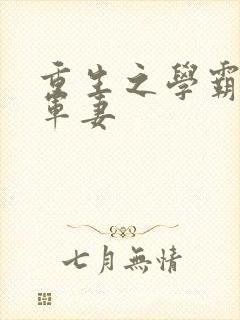 重生之學霸
軍妻
七月無情